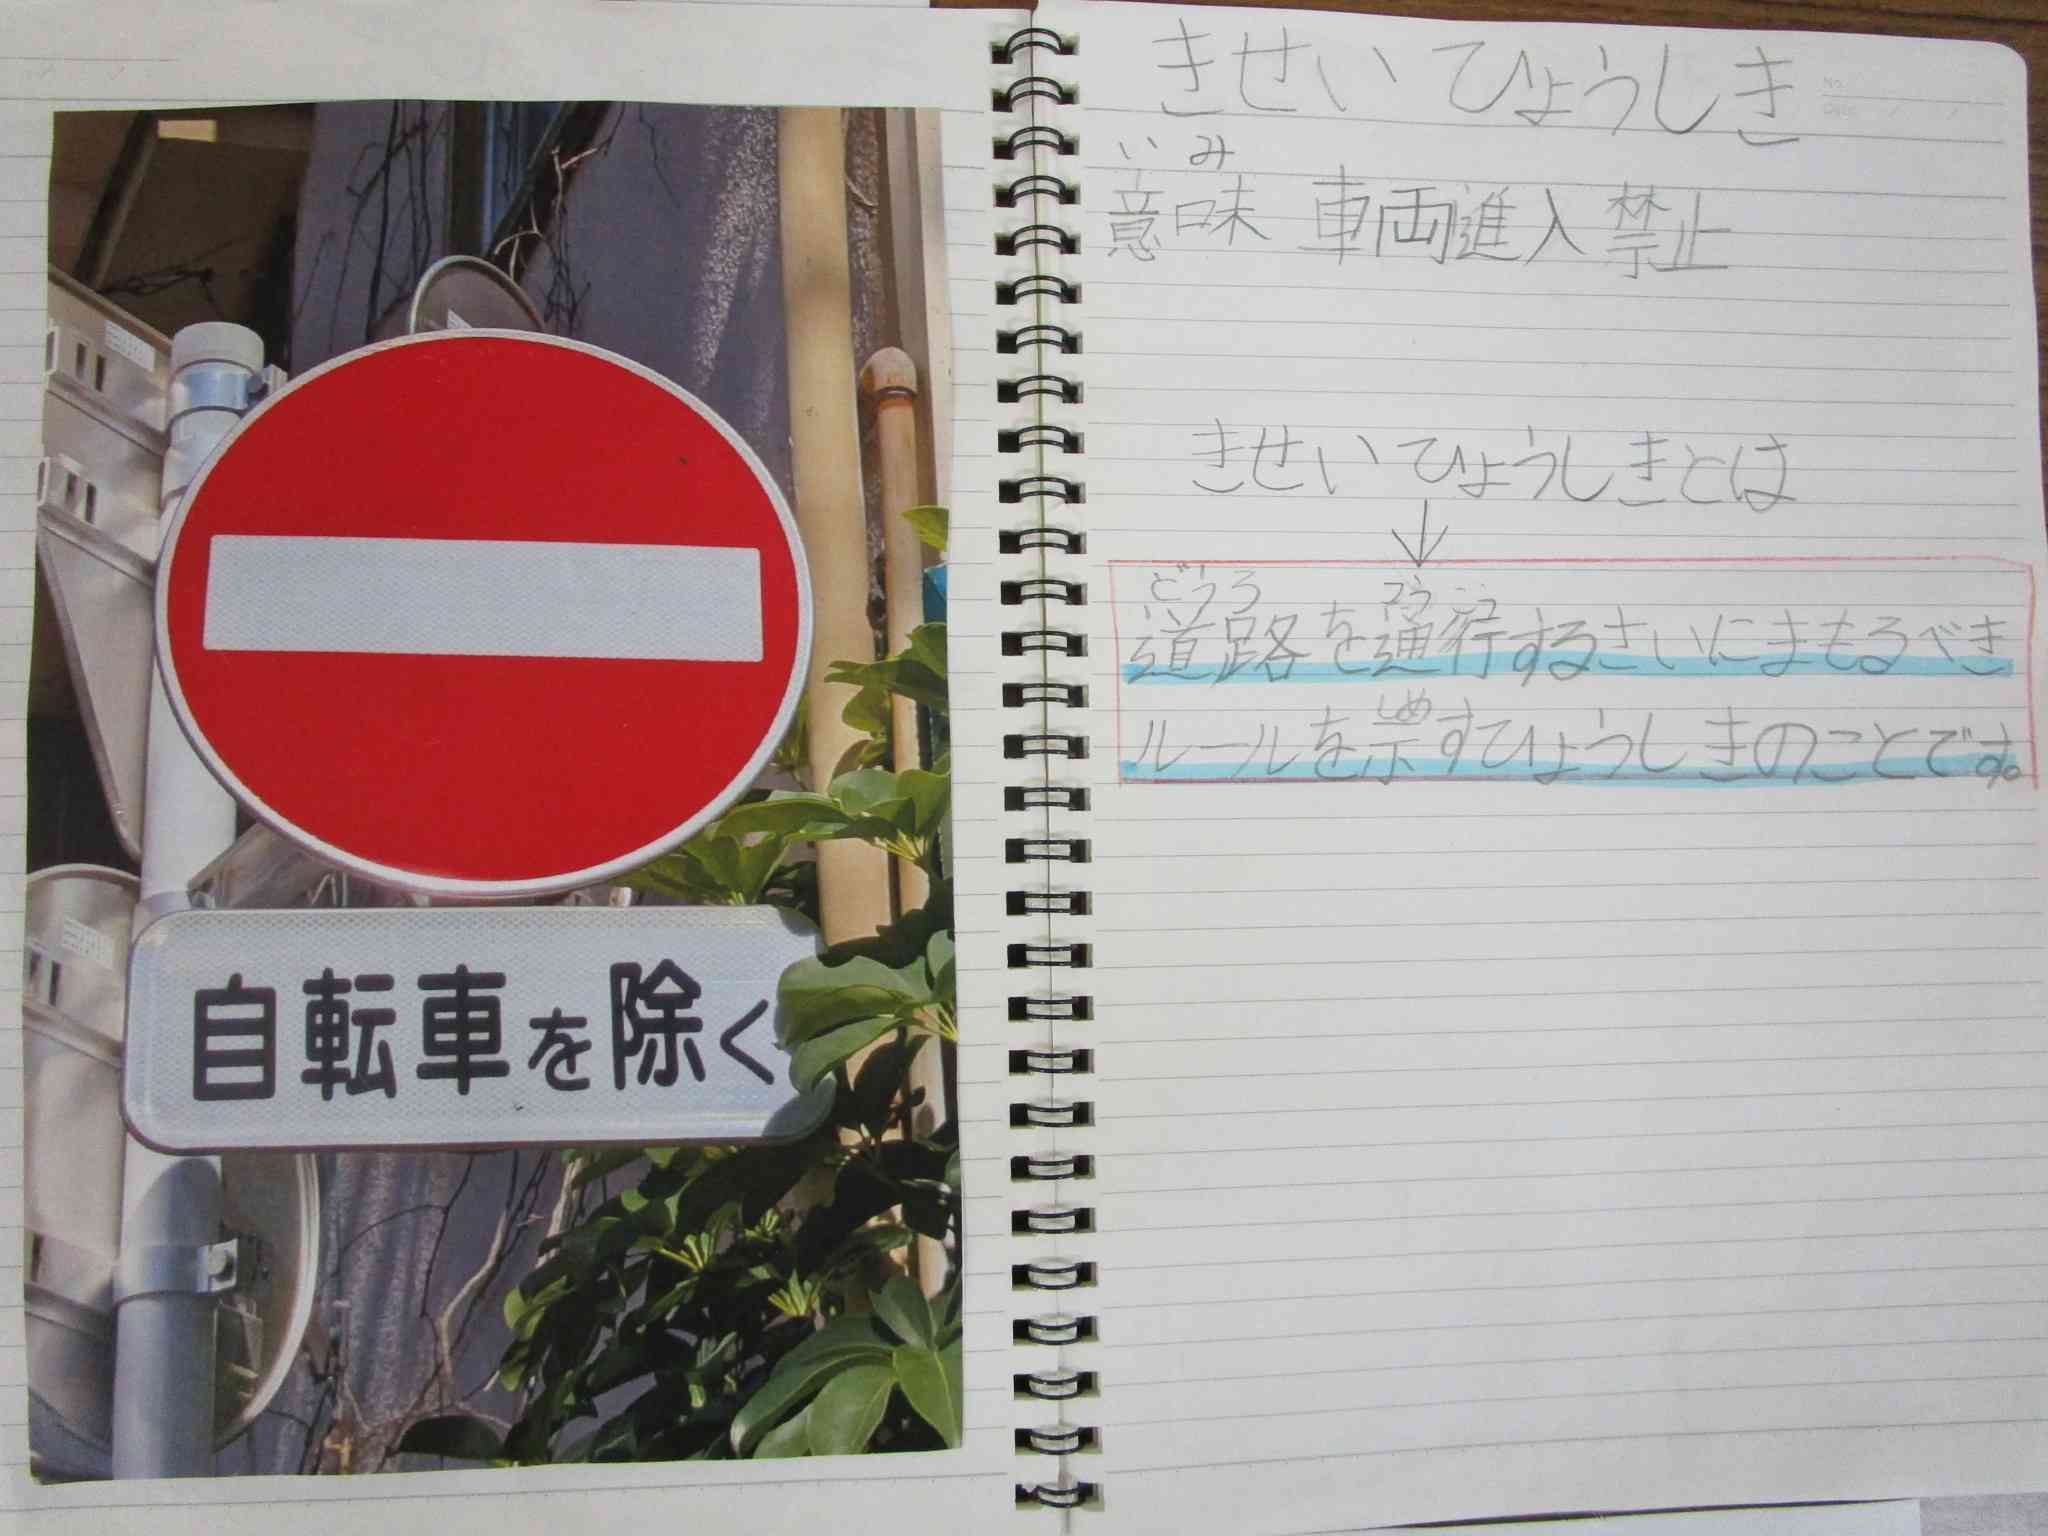 自転車を除く
きせいひょうしき
いみ
意味 車両進入禁止
きせいひょうしきとは
↓
どうろ つうこう
道路を通行するさいにまもるべき
しめ
ルールを示すひょうしきのことです。